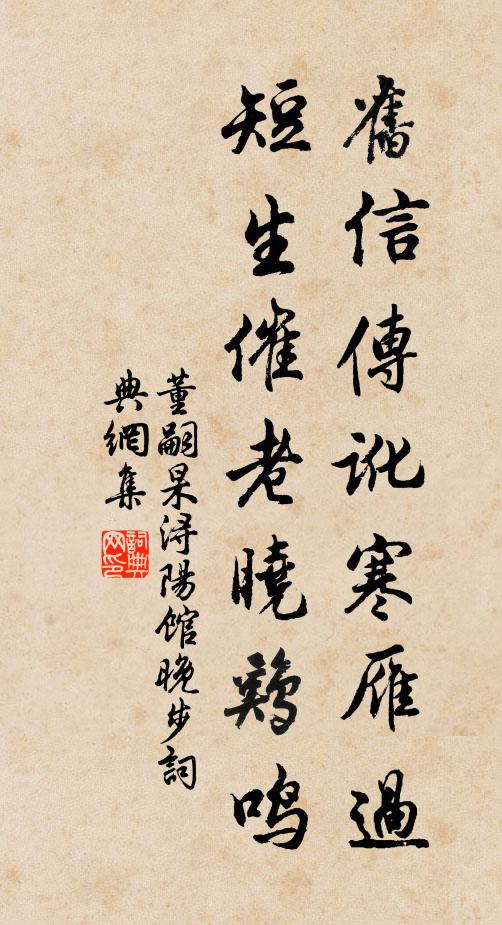 舊信傳訛寒雁過
短生催老曉鷄鳴
董嗣杲潯陽館晚步詞
典網集
詞典網印